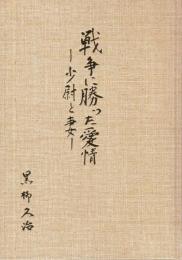 戦争に勝った愛情
―少尉と妻―
黒柳久治